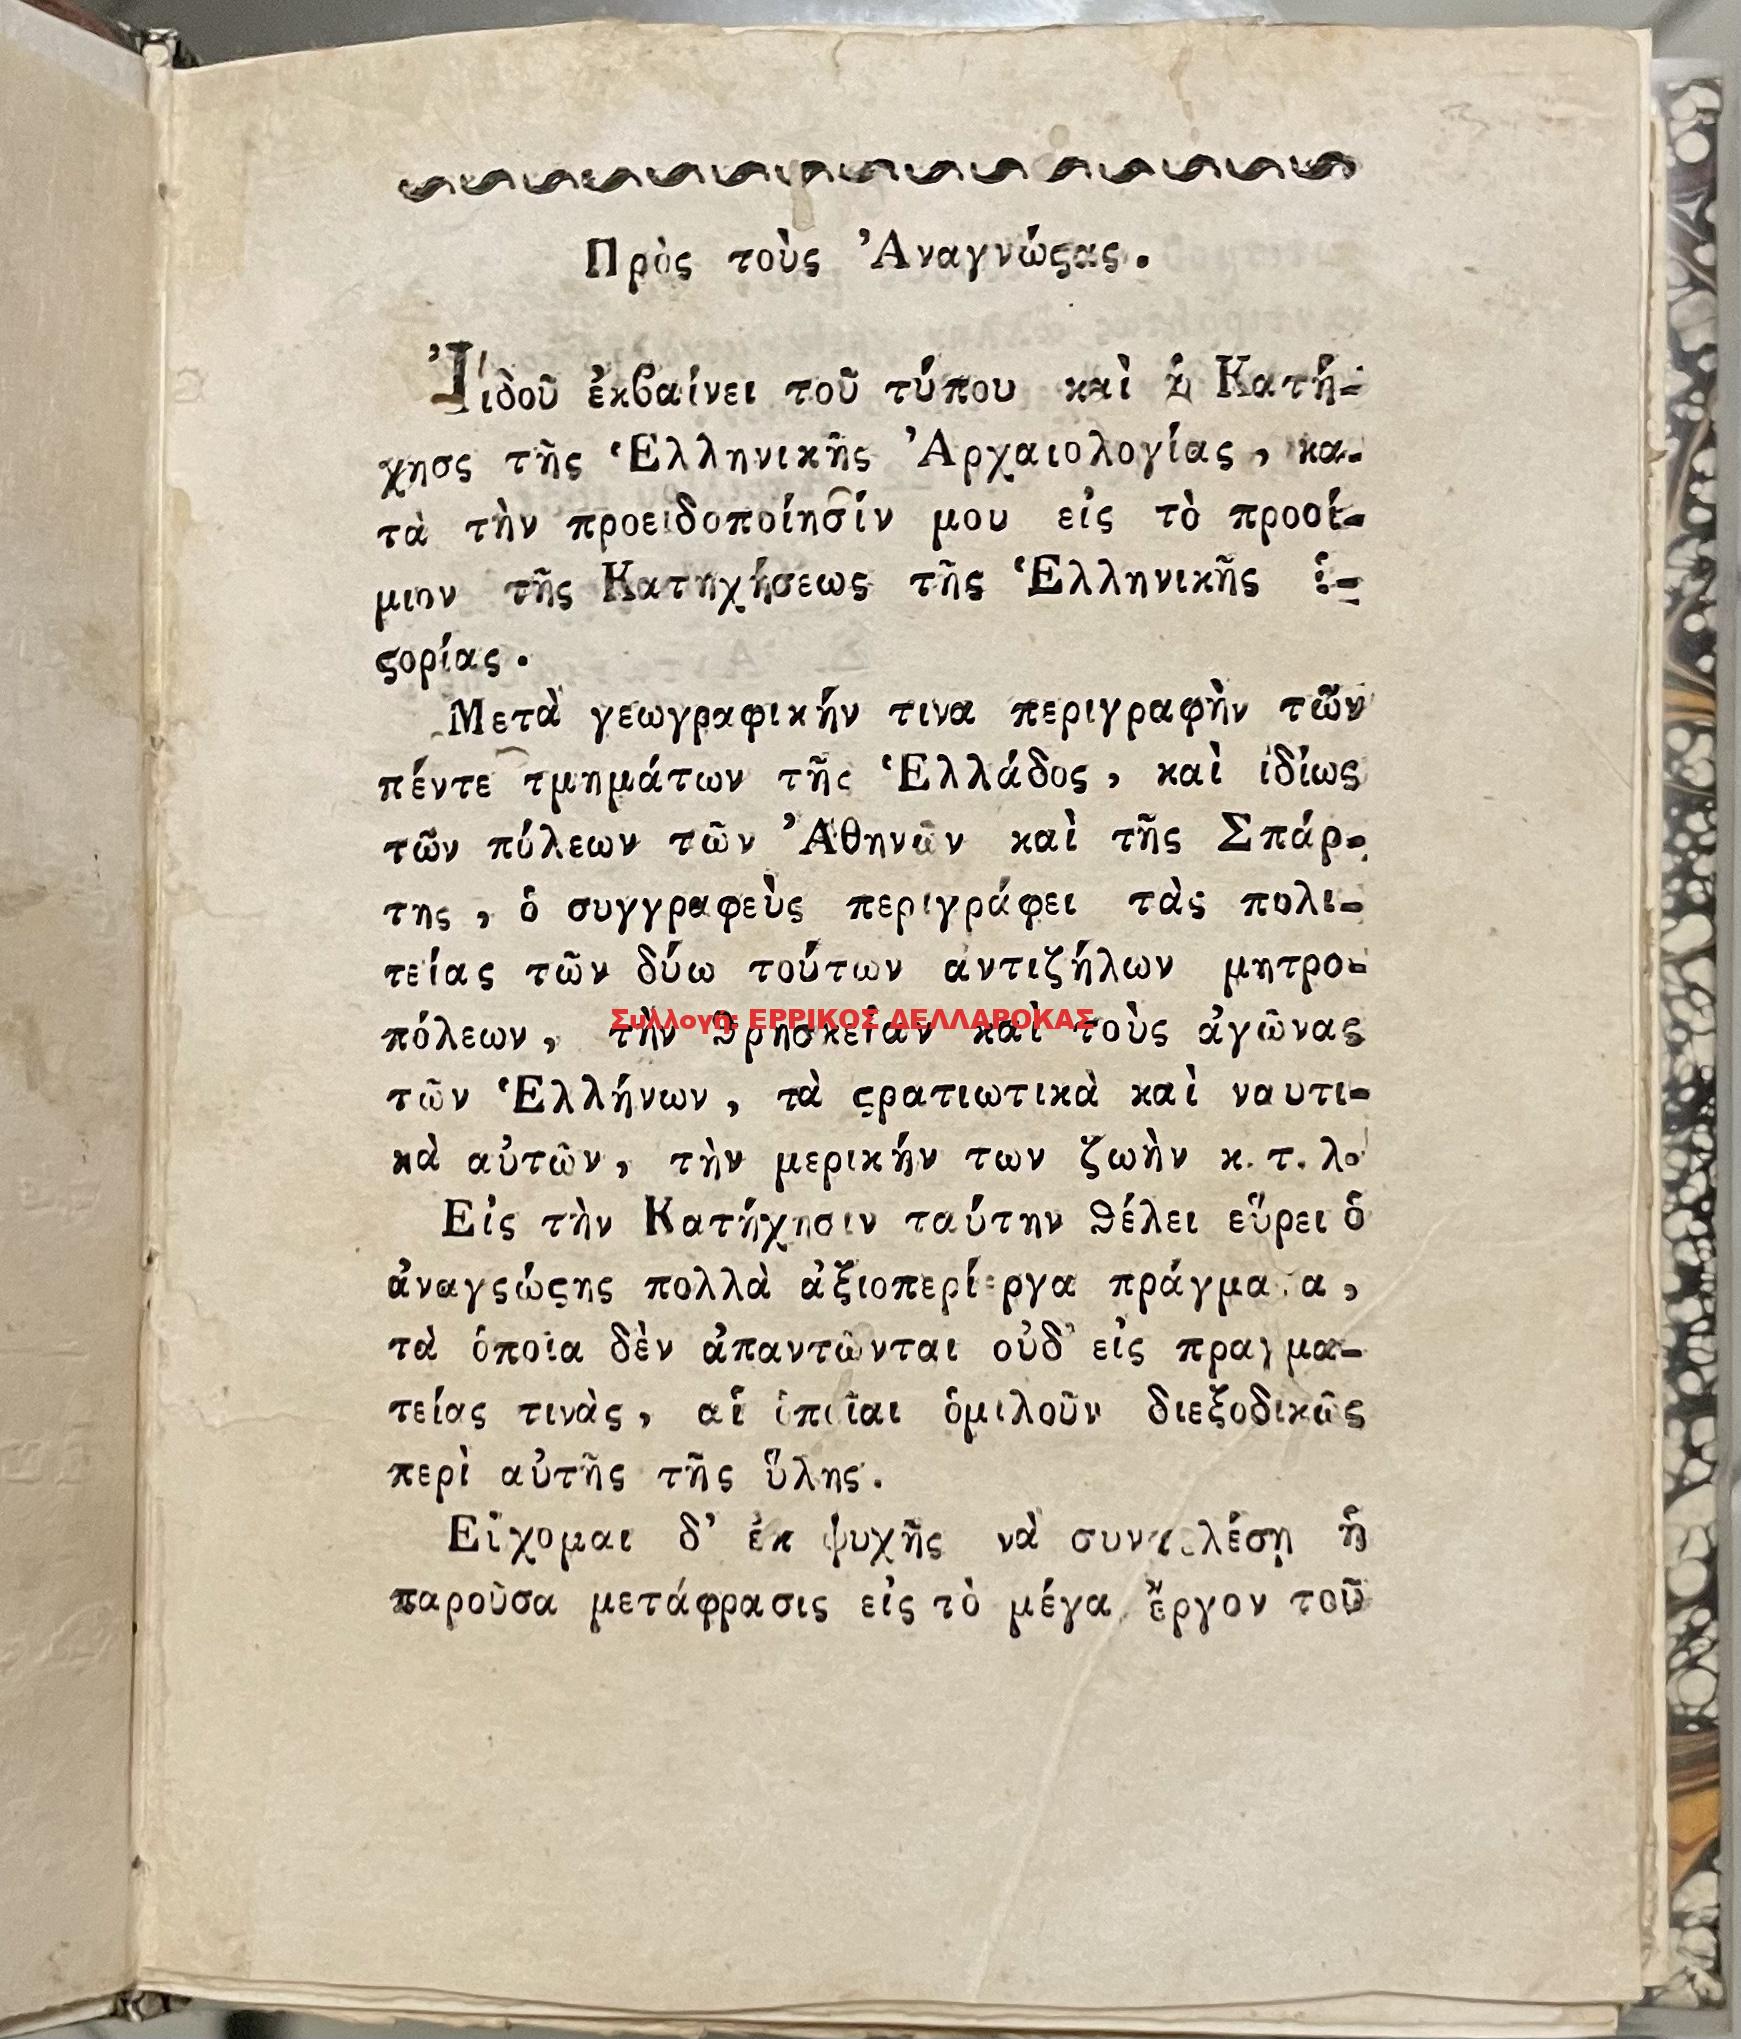 Πρὸς τοὺς Ἀναγνώϛας.
Ἰιδοῦ ἐκβαίνει τοῦ τύπου καὶ ἡ Κατή-
χησς τῆς Ἑλληνικῆς Ἀρχαιολογίας, κα-
τὰ τὴν προειδοποίησίν μου εἰς τὸ προοί-
μιον τῆς Κατηχήσεως τῆς Ἑλληνικῆς ἱ-
ϛορίας.
Μετὰ γεωγραφικήν τινα περιγραφὴν τῶν
πέντε τμημάτων τῆς Ἑλλάδος, καὶ ἰδίως
τῶν πόλεων τῶν Ἀθηνῶν καὶ τῆς Σπάρ-
της, ὁ συγγραφεὺς περιγράφει τὰς πολι-
τείας τῶν δύω τούτων ἀντιζήλων μητρο-
πόλεων, τὴν θρησκείαν καὶ τοὺς ἀγῶνας
Συλλογή: ΕΡΡΙΚΟΣ ΔΕΛΛΑΡΟΚΑΣ
τῶν Ἑλλήνων, τὰ ϛρατιωτικὰ καὶ ναυτι-
κὰ αὐτῶν, τὴν μερικήν των ζωὴν κ. τ. λ.
Εἰς τὴν Κατήχησιν ταύτην θέλει εὕρει ὁ
ἀναγςώϛης πολλὰ ἀξιοπερίεργα πράγματα,
τὰ ὁποῖα δὲν ἀπαντῶνται οὐδ' εἰς πραγμα-
τείας τινὰς, αἱ ὁποῖαι ὁμιλοῦν διεξοδικῶς
περὶ αὐτῆς τῆς ὕλης.
Εὔχομαι δ' ἐκ ψυχῆς νὰ συντελέσῃ ἡ
παροῦσα μετάφρασις εἰς τὸ μέγα ἔργον τοῦ